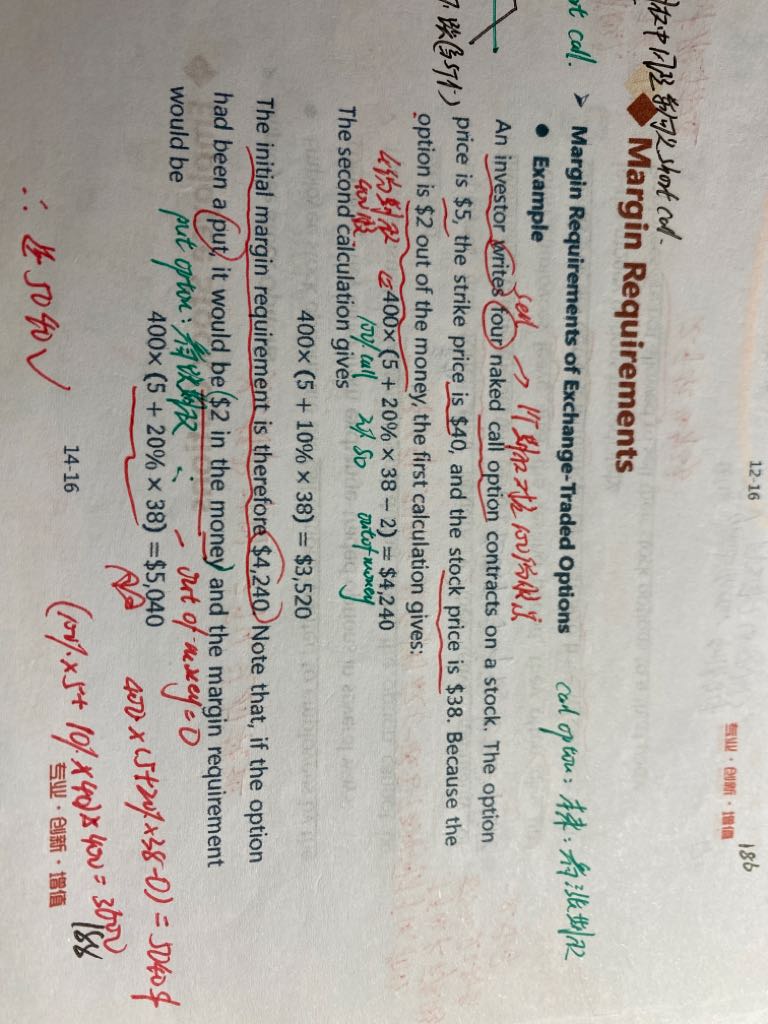 12-16
专业·创新·增值
186
short call.
Margin Requirements
ot call.
➤ Margin Requirements of Exchange-Traded Options
call option: 未来: 看涨期权
● Example
sell →
An investor writes four naked call option contracts on a stock. The option
price is $5, the strike price is $40, and the stock price is $38. Because the
option is $2 out of the money, the first calculation gives:
400× (5 + 20% × 38 − 2) = $4,240
out of money
The second calculation gives
400× (5 + 10% × 38) = $3,520
The initial margin requirement is therefore $4,240. Note that, if the option
had been a put, it would be ($2 in the money) and the margin requirement
would be
put option: 看跌期权
- out of money=0
400× (5 + 20% × 38) =$5,040
400×(5+20%×38-0) = 5040$
∴ 选 5040 √
14-16
(100%×5+ 10%×40)×400= 3600
专业·创新·增值
188